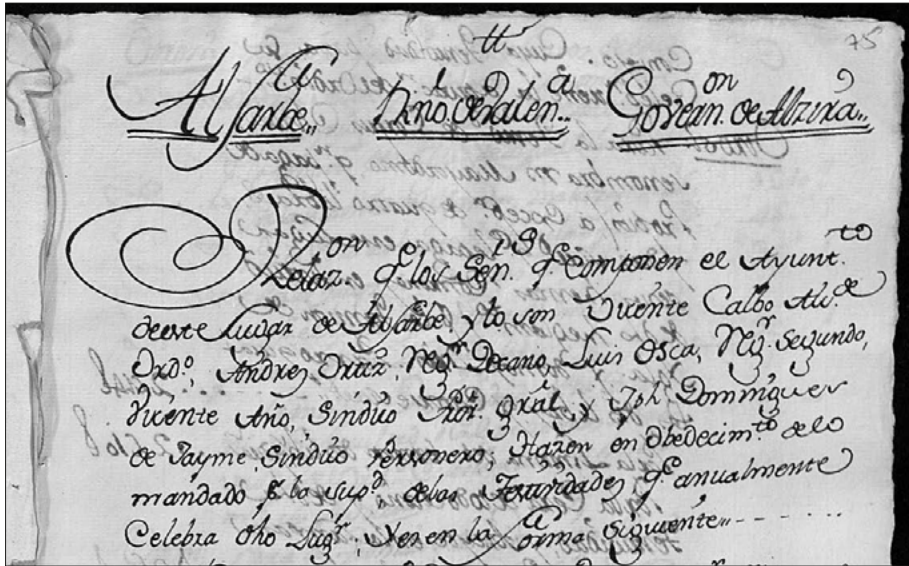 75
tt
Alfarbe.. Rno. de Valen.ª Govern.on de Alzira..
Relaz.on q.e los Señ.rs q.e Componen el Ayunt.to
de este Lugar de Alfarbe, y lo son Vicente Calbo Alc.de
Ord.o, Andres Ortiz, Reg.r Decano, Luis Osca, Reg.r Segundo,
Vicente Año, Sindico Pror. gral, y Jph. Dominguez
de Jayme, Sindico Perssonero, Hazen en Obedecim.to de lo
mandado la sup.d de las Festividades q.e anualmente
Celebra dho Lug.r, en la forma siguiente